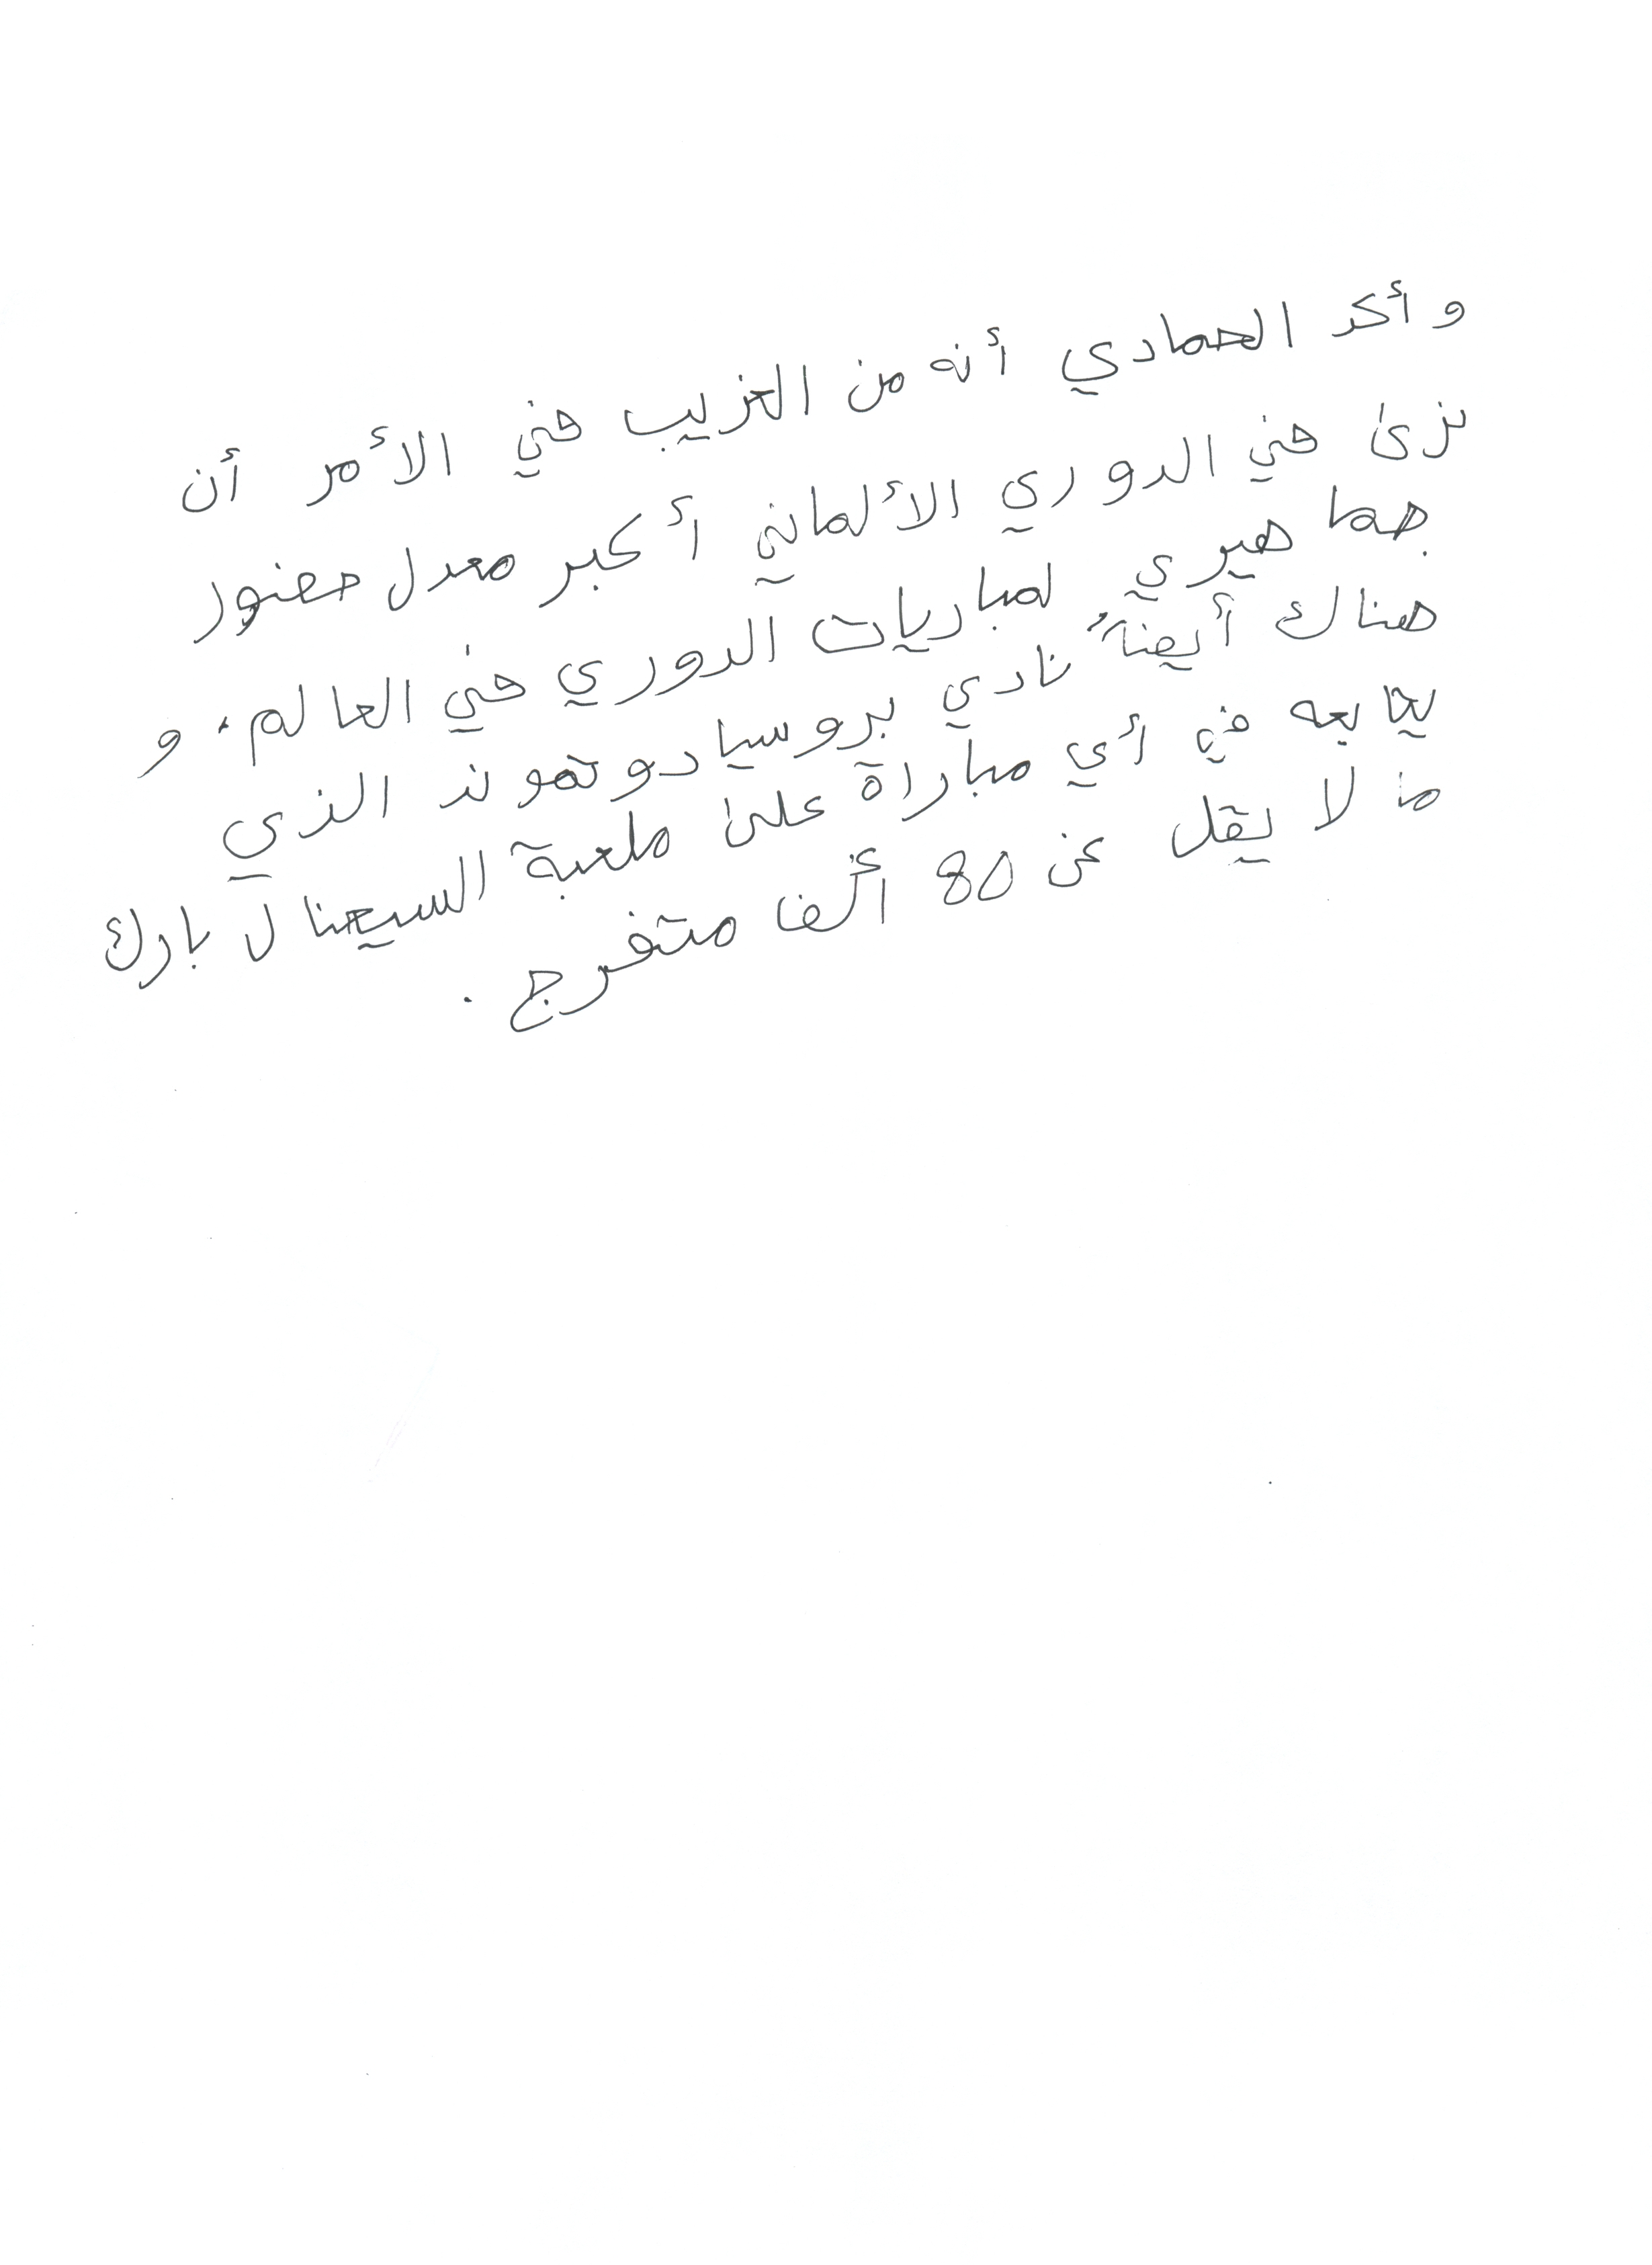 وأكد الحمادي أنه من الغريب في الأمر أن
نرى في الدوري الألماني أكبر معدل حضور
جماهيري لمباريات الدوري في العالم، و
هناك أيضاً نادي بروسيا دوتموند الذي
يتابعه في أي مباراة على ملعبة السيجنال بارك
ما لا يقل عن 80 ألف متفرج.